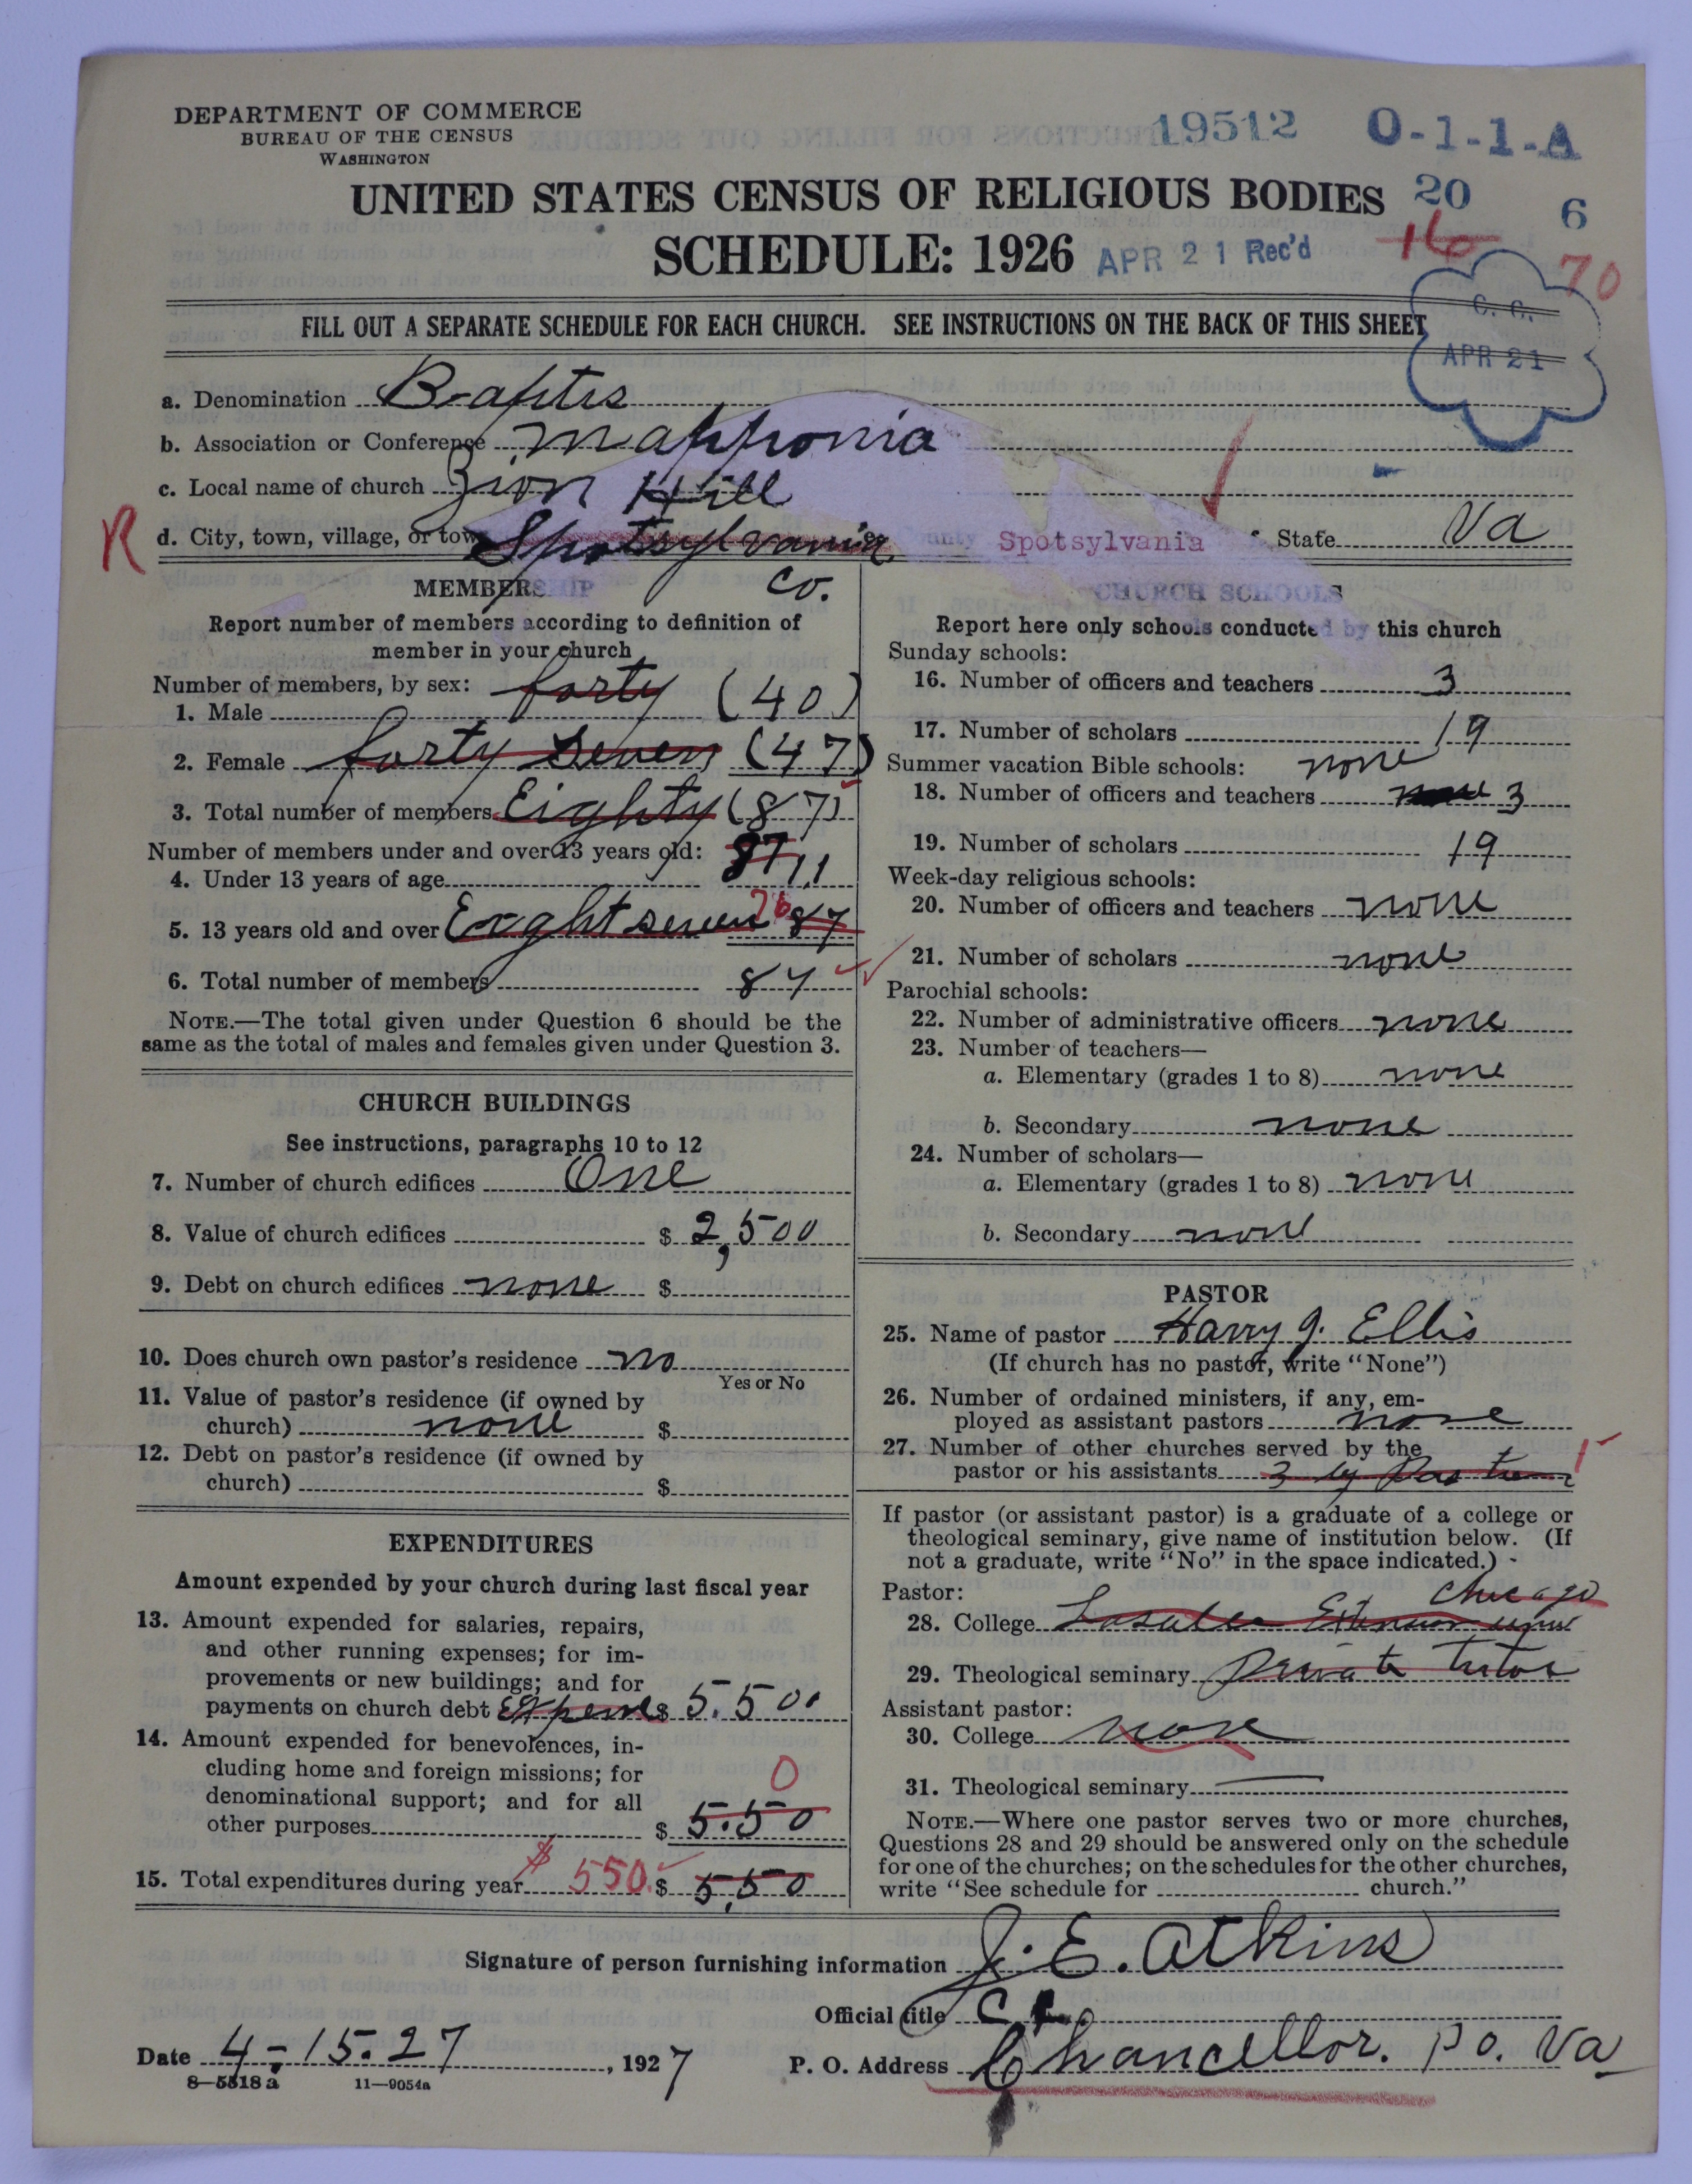 DEPARTMENT OF COMMERCE
BUREAU OF THE CENSUS
WASHINGTON
19512 O-1-1-A
UNITED STATES CENSUS OF RELIGIOUS BODIES 20 6
SCHEDULE: 1926 APR 21 Rec'd 16 70
C. C.
APR 21
FILL OUT A SEPARATE SCHEDULE FOR EACH CHURCH. SEE INSTRUCTIONS ON THE BACK OF THIS SHEET
a. Denomination Baptis
b. Association or Conference Mapponia
c. Local name of church Zion Hill
R d. City, town, village, or tow Spotsylvania Co. unty Spotsylvania State Va
MEMBERSHIP
Report number of members according to definition of
member in your church
Number of members, by sex:
1. Male forty (40)
2. Female forty seven (47)
3. Total number of members Eighty (87)
Number of members under and over 13 years old: 87
4. Under 13 years of age 11
5. 13 years old and over Eaghtseven 76 87
6. Total number of members 87
NOTE.—The total given under Question 6 should be the
same as the total of males and females given under Question 3.
CHURCH BUILDINGS
See instructions, paragraphs 10 to 12
7. Number of church edifices One
8. Value of church edifices $ 2,500
9. Debt on church edifices none $
10. Does church own pastor's residence no
Yes or No
11. Value of pastor's residence (if owned by
church) none $
12. Debt on pastor's residence (if owned by
church) $
EXPENDITURES
Amount expended by your church during last fiscal year
13. Amount expended for salaries, repairs,
and other running expenses; for im-
provements or new buildings; and for
payments on church debt $ 5.500
14. Amount expended for benevolences, in-
cluding home and foreign missions; for 0
denominational support; and for all
other purposes $ 5.50
15. Total expenditures during year $ 550. $ 5,50
CHURCH SCHOOLS
Report here only schools conducted by this church
Sunday schools:
16. Number of officers and teachers 3
17. Number of scholars 19
Summer vacation Bible schools: none
18. Number of officers and teachers 3
19. Number of scholars 19
Week-day religious schools:
20. Number of officers and teachers none
21. Number of scholars none
Parochial schools:
22. Number of administrative officers none
23. Number of teachers—
a. Elementary (grades 1 to 8) none
b. Secondary none
24. Number of scholars—
a. Elementary (grades 1 to 8) none
b. Secondary none
PASTOR
25. Name of pastor Harry J. Ellis
(If church has no pastor, write "None")
26. Number of ordained ministers, if any, em-
ployed as assistant pastors none
27. Number of other churches served by the
pastor or his assistants 3 by
If pastor (or assistant pastor) is a graduate of a college or
theological seminary, give name of institution below. (If
not a graduate, write "No" in the space indicated.)
Pastor: Chicago
28. College Lasalea Extension
29. Theological seminary Private tutor
Assistant pastor:
30. College none
31. Theological seminary
NOTE.—Where one pastor serves two or more churches,
Questions 28 and 29 should be answered only on the schedule
for one of the churches; on the schedules for the other churches,
write "See schedule for church."
Signature of person furnishing information J. E. Atkins
Official title
Date 4-15.27, 1927 P. O. Address Chancellor. P.O. Va
8—5318 a 11—9054a